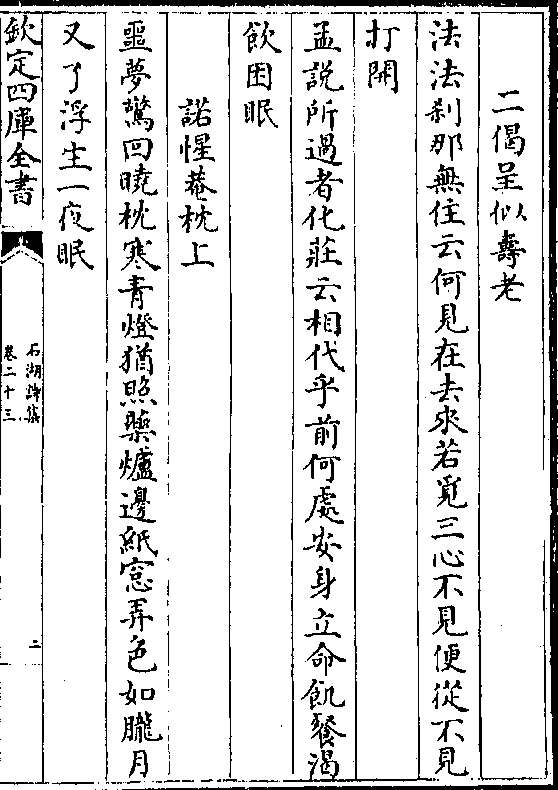 二偈呈似壽老
法法刹那無住云何見在去來若覓三心不見便從不見
打開
孟說所過者化莊云相代乎前何處安身立命飢餐渴
飲困眠
諾惺菴枕上
噩夢驚回曉枕寒青燈猶照藥爐邊紙窓弄色如朧月
又了浮生一夜眠
欽定四庫全書
石湖詩集
卷二十三
二